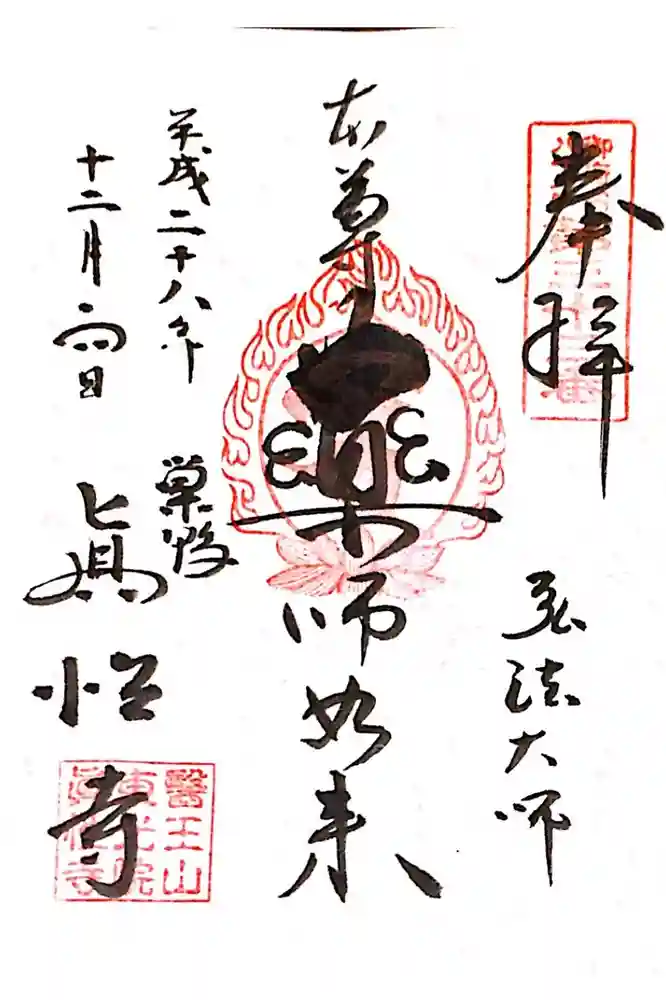 奉拝
弘法大師
本尊
薬師如来
平成二十八年
十二月二四日
巣鴨
眞性寺
醫王山
東光院
眞性寺